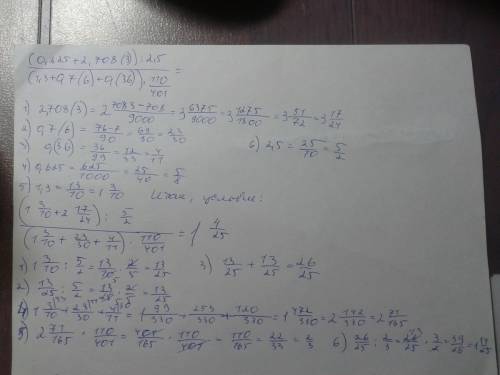 (0,625+2,708(3)):2,5
(1,3+0,7(6)+0,(36))·110/401 =
1) 2,708(3)=2 7083-708/9000=3 6375/9000=3 1275/1800=3 51/72=3 17/24
2) 0,7(6)=76-7/90=69/90=23/30
3) 0,(36)=36/99=12/33=4/11
6) 2,5=25/10=5/2
4) 0,625=625/1000=25/40=5/8
5) 1,3=13/10=1 3/10 Итак, условие:
(1 3/10+2 17/24):5/2
(1 3/10+23/30+4/11)·110/401 =1 4/25
1) 1 3/10:5/2=13/10·2/5=13/25
3) 13/25+13/25=26/25
2) 13/25:5/2=13/5·2/5=13/25
4) 1 3/10+23/30+4/11=1 99/330+253/330+120/330=1 472/330=2 142/330=2 71/165
5) 2 71/165·110/401=401/165·110/401=110/165=22/33=2/3
6) 26/25:2/3=26/25·3/2=39/25=1 14/25